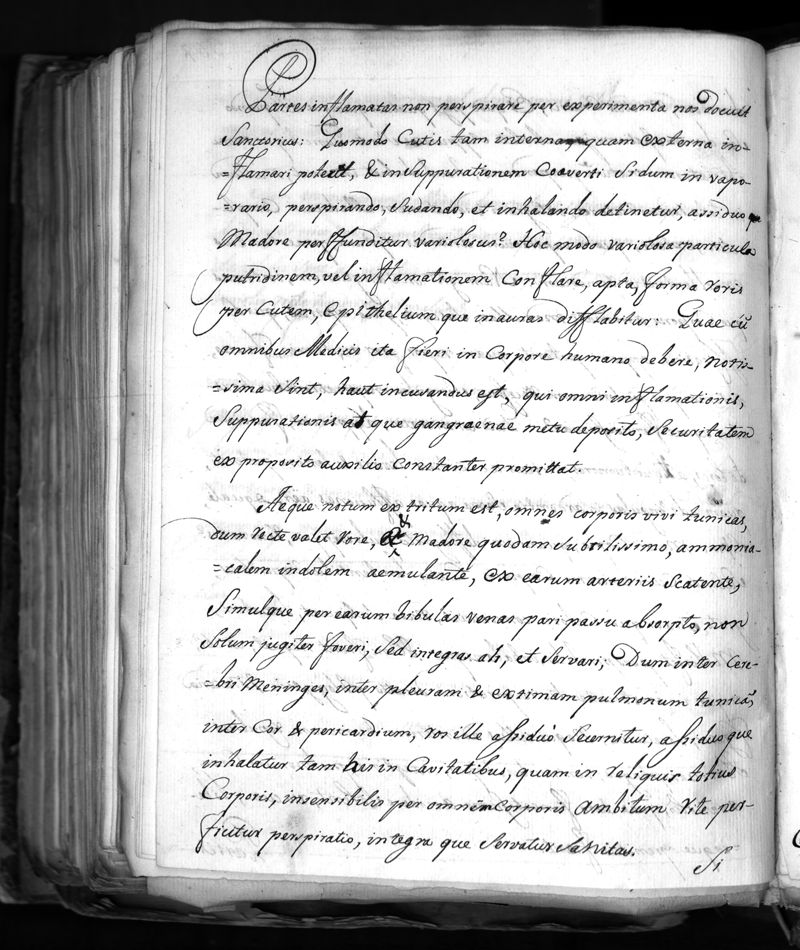 Partes inflamatas non perspirare per experimenta nos docuit
Sanctorius: Quomodo Cutis tam interna, quam externa in-
=flamari poterit, & in Suppurationem Coaverti Si dum in vapo-
=rario, perspirando, Sudando, et inhalando detinetur, assiduoque
Madore perffunditur variolosus? Hoc modo variolosa particula
putridinem, vel inflamationem Conflare, apta, forma roris
per Cutem, Epithelium que in auras difflabitur: Quae cũ
omnibus Medicis ita fieri in Corpore humano debere, notis-
=sima Sint, haut incusandus est, qui omni inflamationis,
Suppurationis at que gangraenae metu deposito, Securitatem
ex proposito auxilio Constanter promittat.
Aeque notum ex tritum est, omnes corporis vivi tunicas,
dum recte valet rore, & Madore quodam Subtilissimo, ammonia-
=calem indolem aemulante, ex earum arteriis Scatente,
Simulque per earum bibulas venas pari passu absorpto, non
Solum jugiter foveri, Sed integras ali, et Servari; Dum inter Cere-
=bri Meninges, inter pleuram & extimam pulmonum tunicã,
inter Cor & pericardium, ros ille assiduò Secernitur, assiduo que
inhalatur tam his in Cavitatibus, quam in reliquis totius
Corporis, insensibilis per omnem Corporis ambitum rite per-
ficitur perspiratio, integra que Servatur Sanitas.
Si